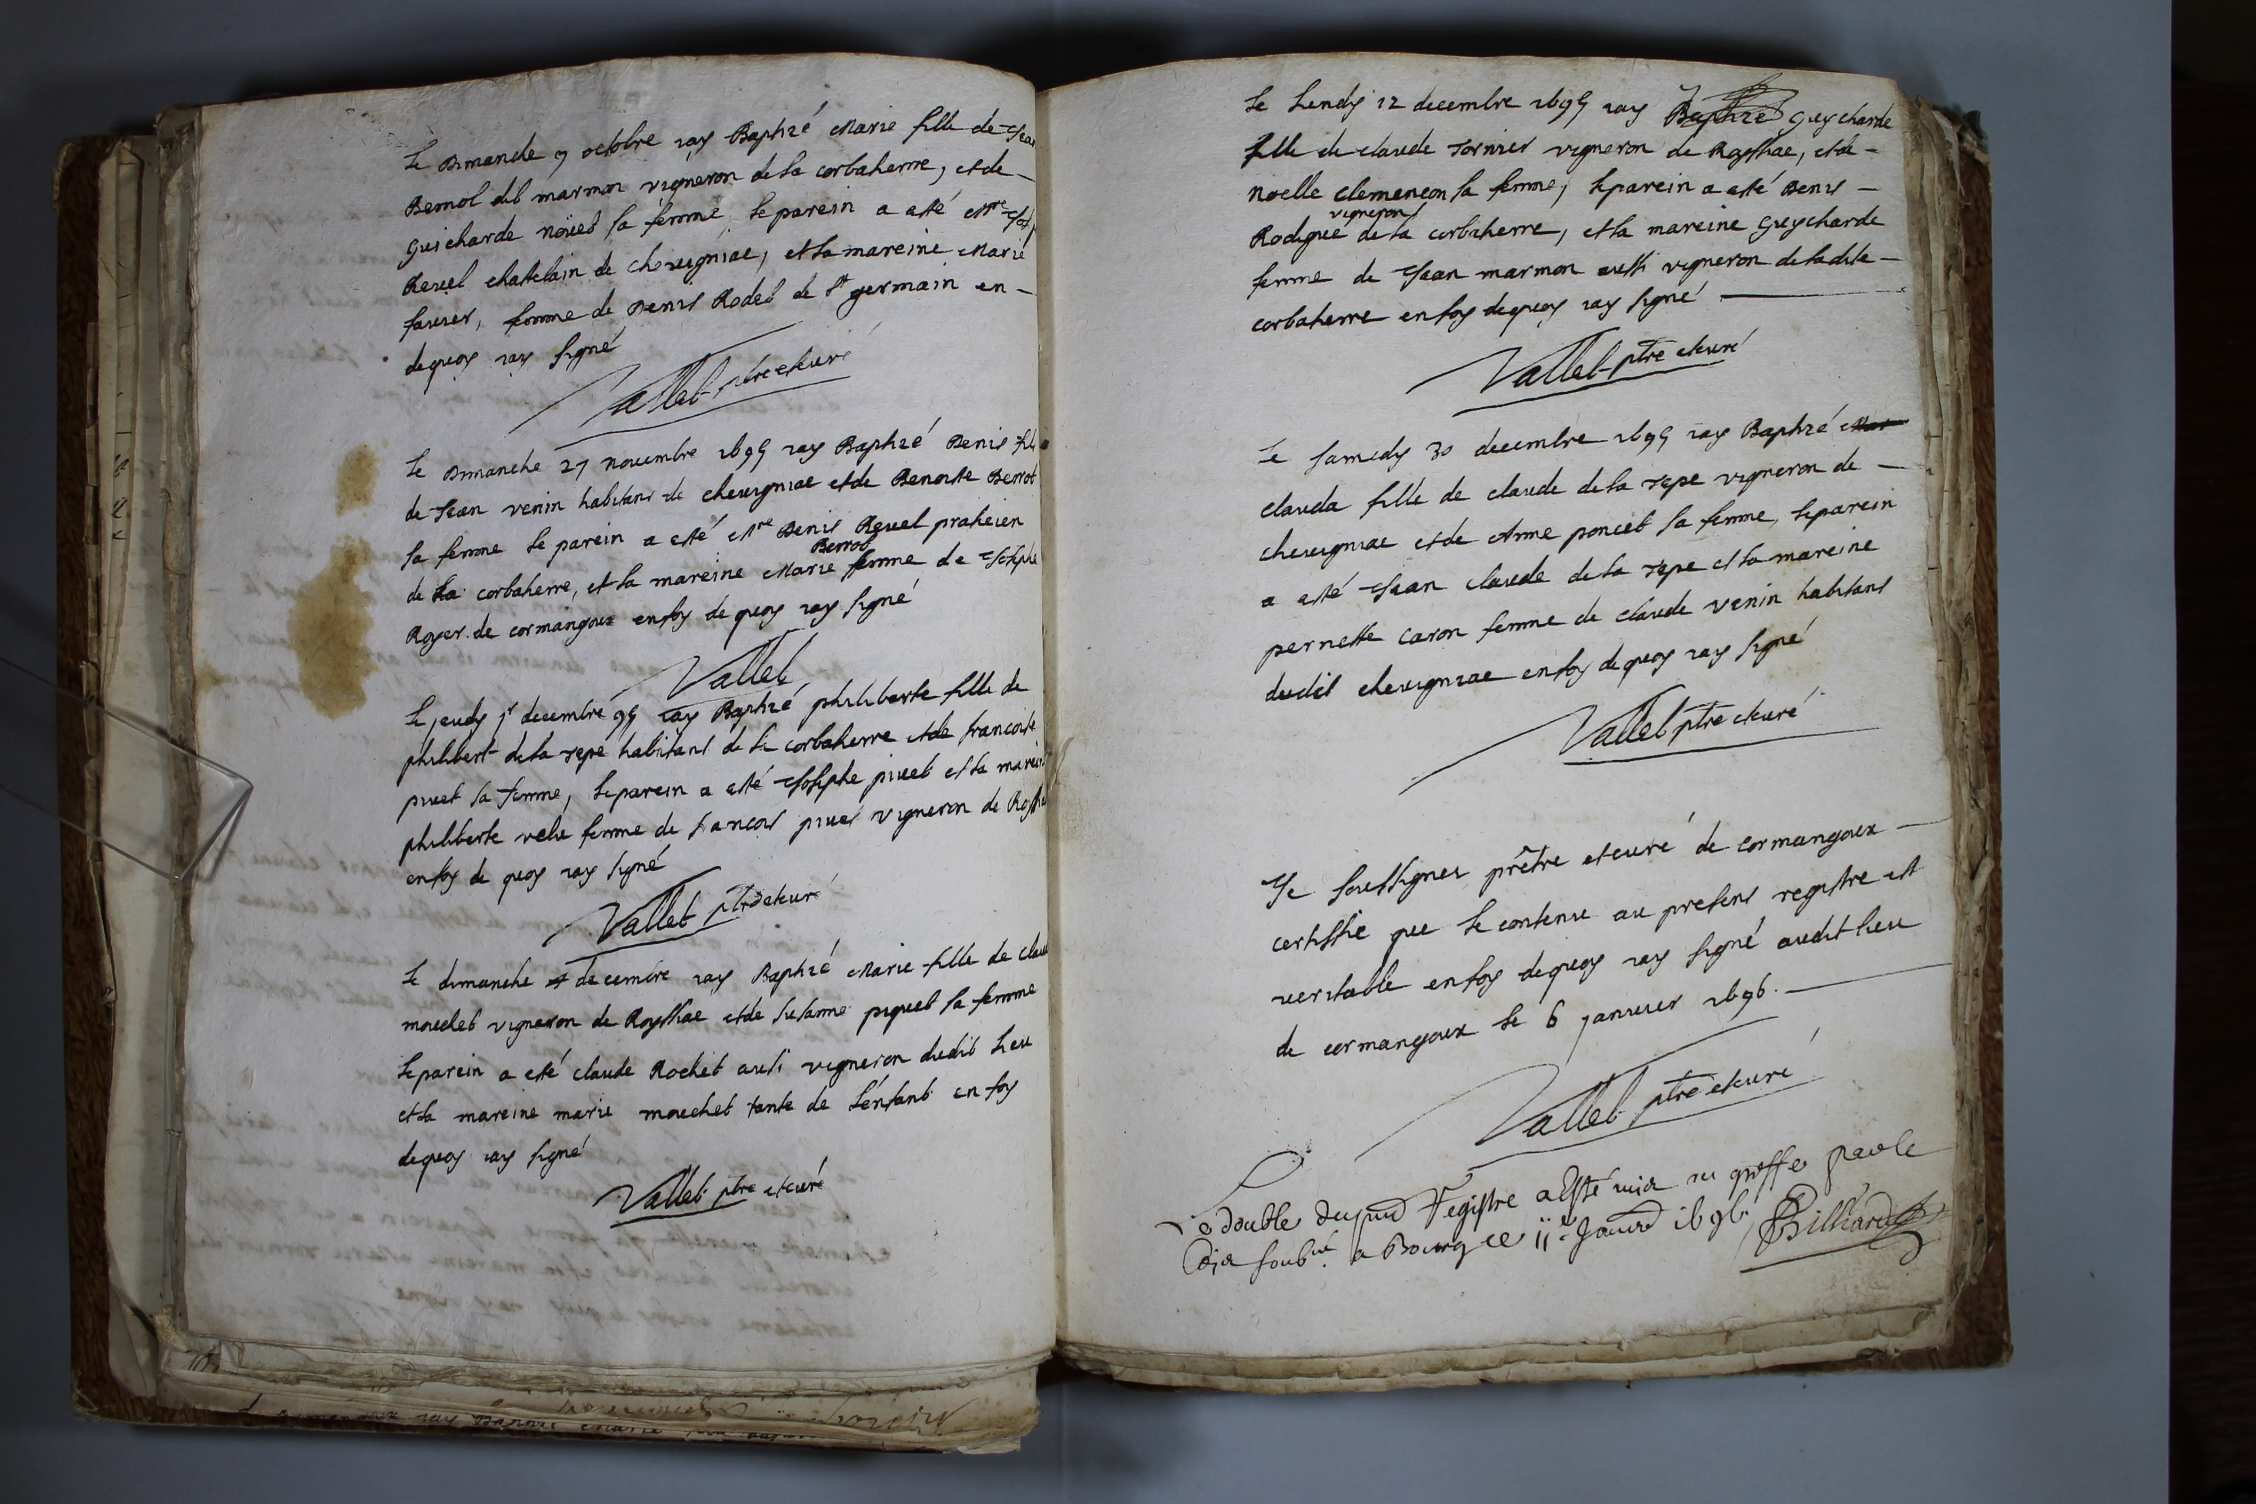 Le Dimanche 9 octobre iay Baptizé Marie fille de Jean
Bernol dit marmon vigneron de la corbaterre, et de
Guicharde nöuet sa femme le parein a esté Mre
Revel chastelain de cheuigniae, et la mareine Marie
favier, femme de Denis Rodet de st germain en
dequoy iay signé
Vallet ptre et curé
Le Dimanche 27 novembre 1695 iay Baptizé Denis fils
de Jean venin habitant de cheuigniae et de Benoiste Berrot
sa femme le parein a esté Mre Denis Revel praticien
Berrot
de La corbaterre, et la mareine Marie femme de Joseph
Royer de cormangoux enfoy de quoy iay signé
Vallet
Le jeudy 1r decembre 95 iay Baptizé philiberte fille de
philibert de la repe habitant de la corbaterre et de francoise
pivet sa femme, le parein a esté Josephe pivet et la mareine
philiberte velu femme de francois pivet vigneron de
enfoy de quoy iay signé
Vallet ptre et curé
Le dimanche 4 decembre iay Baptizé Marie fille de
mouchet vigneron de Royssiae et de susanne piquet sa femme
le parein a esté claude Rochet aussi vigneron dudit lieu
et la mareine marie mouchet tante de l'enfant en foy
dequoy iay signé
Vallet ptre et curé
Le Lundy 12 decembre 1695 iay Baptizé Guycharde
fille de claude tornier vigneron de Royssiae, et de
Noelle clemencon sa femme, le parein a esté Denis
vigneron
Rodigue de la corbaterre, et la mareine Guycharde
femme de Jean marmon aussi vigneron de ladite
corbaterre enfoy dequoy iay signé
Vallet ptre et curé
Le samedy 30 decembre 1695 iay Baptizé
clauda fille de claude de la repe vigneron de
cheuigniae et de Anne poncet sa femme, le parein
a esté Jean claude de la repe et la mareine
pernette caron femme de claude venin habitant
dudit cheuigniae enfoy dequoy iay signé
Vallet ptre et curé
Je soussignez prêtre et curé de cormangoux
certiffie que le contenu au present registre est
veritable enfoy dequoy iay signé audit lieu
de cormangoux le 6 janvier 1696.
Vallet ptre et curé
Le double du Registre a Esté mis au greffe par le
soubné. a Bourg ce 11e Janvr 1696. Billiard